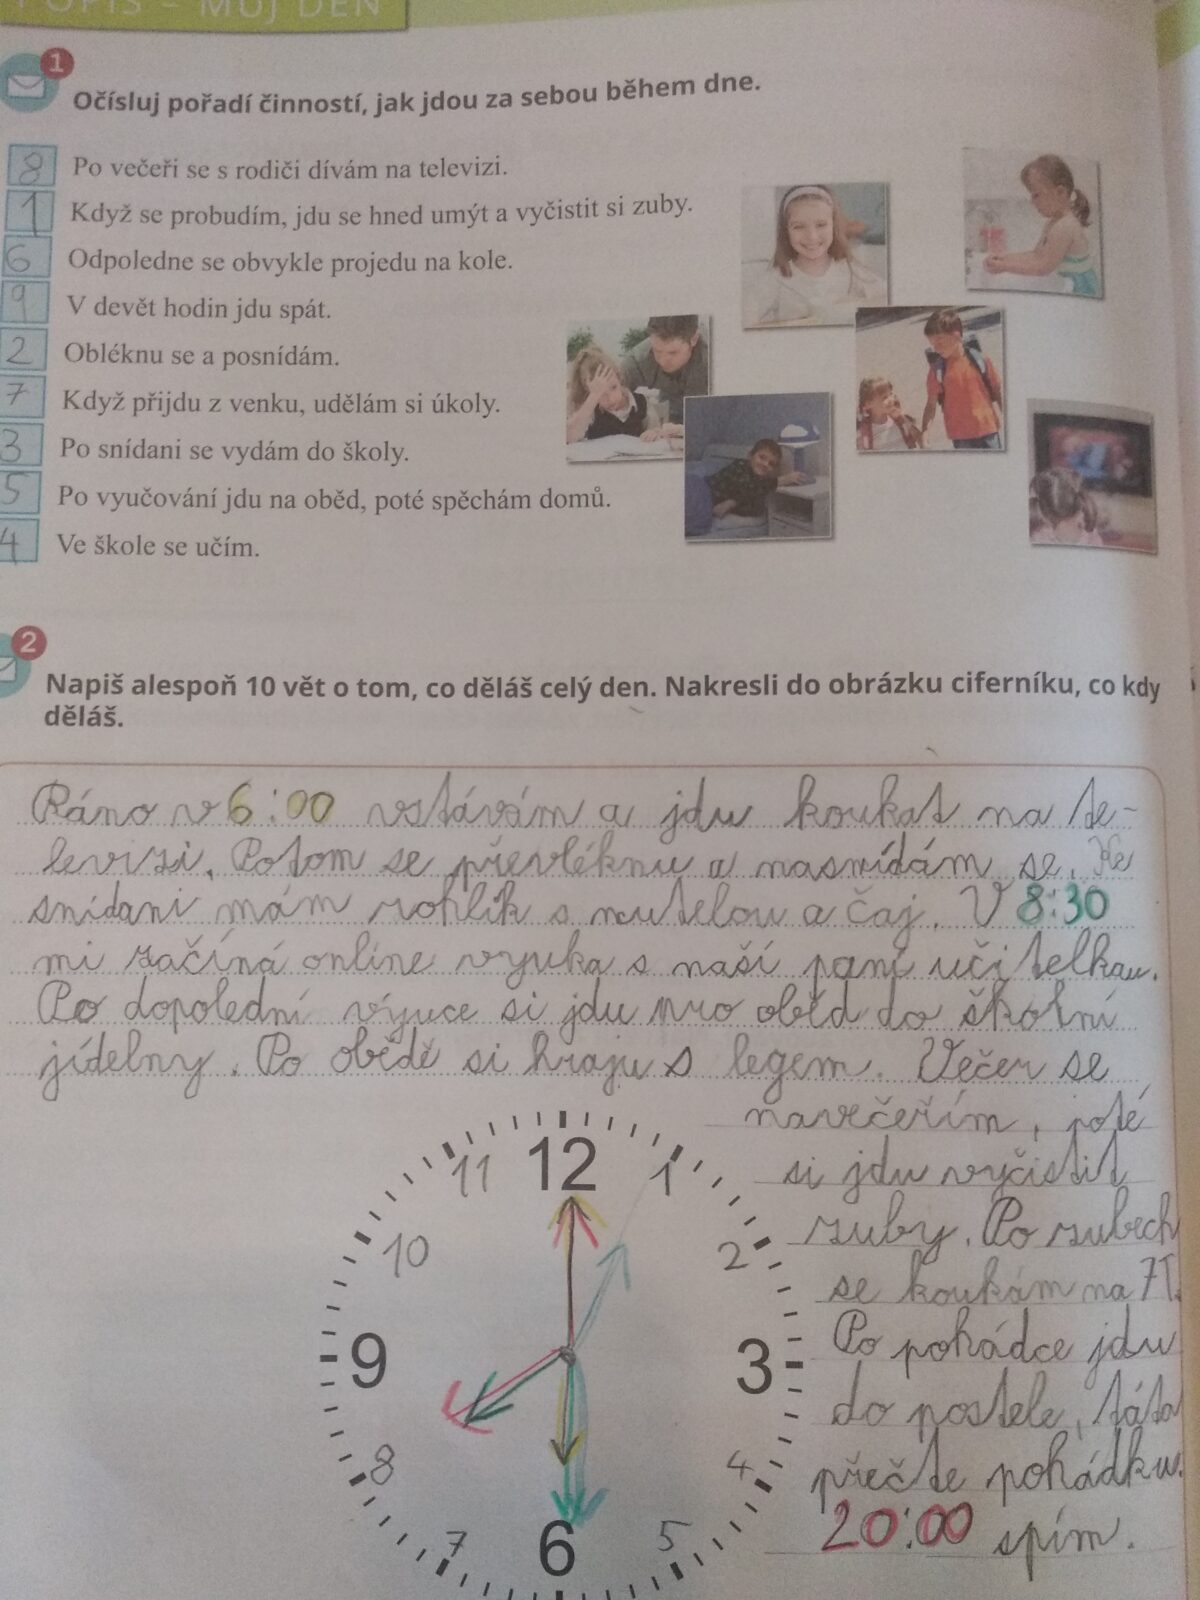 POPIS – MŮJ DEN
1
Očísluj pořadí činností, jak jdou za sebou během dne.
8 Po večeři se s rodiči dívám na televizi.
1 Když se probudím, jdu se hned umýt a vyčistit si zuby.
6 Odpoledne se obvykle projedu na kole.
9 V devět hodin jdu spát.
2 Obléknu se a posnídám.
7 Když přijdu z venku, udělám si úkoly.
3 Po snídani se vydám do školy.
5 Po vyučování jdu na oběd, poté spěchám domů.
4 Ve škole se učím.
2
Napiš alespoň 10 vět o tom, co děláš celý den. Nakresli do obrázku ciferníku, co kdy
děláš.
Ráno v 6:00 vstávám a jdu koukat na te-
levizi. Potom se převléknu a nasnídám se. Ke
snídani mám rohlík s nutelou a čaj. V 8:30
mi začíná online vyuka s naší paní učitelkou.
Po dopolední výuce si jdu pro oběd do školní
jídelny. Po obědě si hraju s legem. Večer se
navečeřím, poté
si jdu vyčistit
zuby. Po zubech
se koukám na TV.
Po pohádce jdu
do postele, táta
přečte pohádku.
20:00 spím.
12
11
1
10
2
9
3
8
4
7
5
6